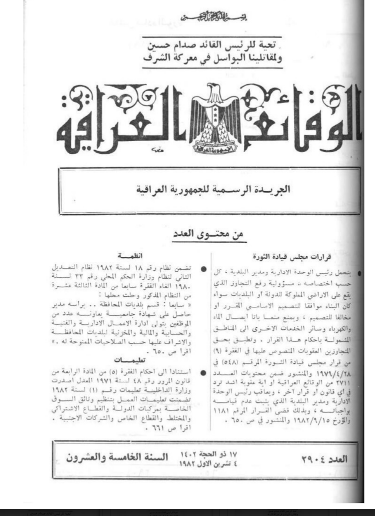 بسم الله الرحمن الرحيم
تحية للرئيس القائد صدام حسين
ولمقاتلينا البواسل في معركة الشرف
الوقائع العراقية
الجريدة الرسمية للجمهورية العراقية
من محتوى العدد
قرارات مجلس قيادة الثورة
يتحمل رئيس الوحدة الادارية ومدير البلدية ، كل
حسب اختصاصه ، مسؤولية رفع التجاوز الذي
يقع على الاراضي المملوكة للدولة او البلديات سواء
كان البناء موافقا للتصميم الاساسي المقرر او
مخالفا للتصميم ، ويمنع منعا باتا ايصال الماء
والكهرباء وسائر الخدمات الاخرى الى المناطق
المشمولة باحكام هذا القرار . وتطبق بحق
المتجاوزين العقوبات المنصوص عليها في الفقرة (٩)
من قرار مجلس قيادة الثورة المرقم (٥٤٨) في
١٩٧٩/٤/٢٨ والمنشور ضمن محتويات العدد
٢٧١١ من الوقائع العراقية او اية عقوبة اشد ترد
في أي قانون او قرار آخر ، ويعاقب رئيس الوحدة
الادارية ومدير البلدية الذي يثبت عدم قيامه
بواجباته ، وبذلك قضى القرار المرقم ١١٨١
والمؤرخ ١٩٨٢/٩/١٥ والمنشور في ص ٦٥٠ .
انظمة
تضمن نظام رقم ١٨ لسنة ١٩٨٢ نظام التعديل
الثاني لنظام وزارة الحكم المحلي رقم ٣٣ لسنة
١٩٨٠ الغاء الفقرة سابعا من المادة الثالثة عشرة
من النظام المذكور وحلت محلها :
« سابعا : قسم بلديات المحافظة .. يرأسه مدير
حاصل على شهادة جامعية يعاونه عدد من
الموظفين يتولى ادارة الاعمال الادارية والفنية
والحسابية والمالية والمخزنية لبلديات المحافظة
والاشراف عليها حسب الصلاحيات الممنوحة له .»
اقرا ص ٦٥٠ .
تعليمات
استنادا الى احكام الفقرة (٥) من المادة الرابعة من
قانون المرور رقم ٤٨ لسنة ١٩٧١ المعدل اصدرت
وزارة الداخلية تعليمات رقم (١) لسنة ١٩٨٢
تضمنت تعليمات العمل بتنظيم وثائق السوق
الخاصة بمركبات الدولة والقطاع الاشتراكي
والمختلط والقطاع الخاص والشركات الاجنبية .
اقرا ص ٦٦١ .
العدد ٢٩٠٤
١٧ ذو الحجة ١٤٠٢
٤ تشرين الاول ١٩٨٢
السنة الخامسة والعشرون